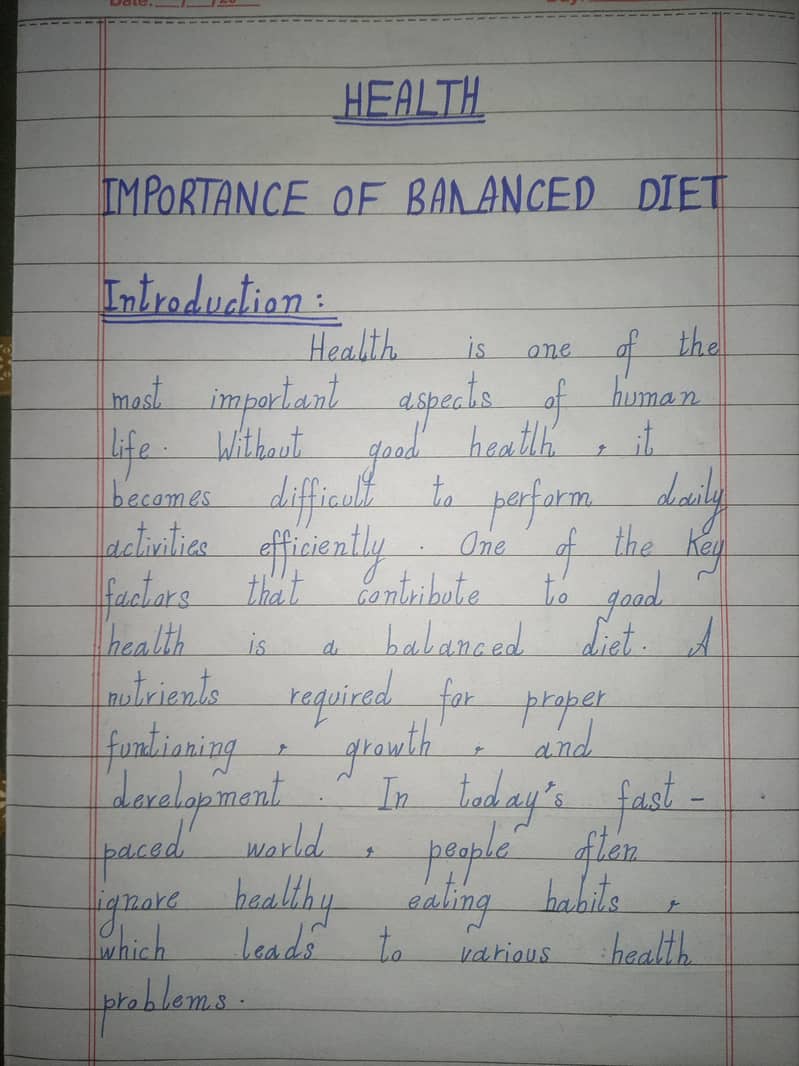 Date: __/__/20__
Day:
HEALTH
IMPORTANCE OF BALANCED DIET
Introduction :
Health is one of the
most important aspects of human
life. Without good heatlh , it
becomes difficult to perform daily
activities efficiently . One of the Key
factors that contribute to good
health is a balanced diet. A
nutrients required for proper
funtioning , growth , and
development . In today's fast -
paced world , people often
ignore healthy eating habits ,
which leads to various health
problems.